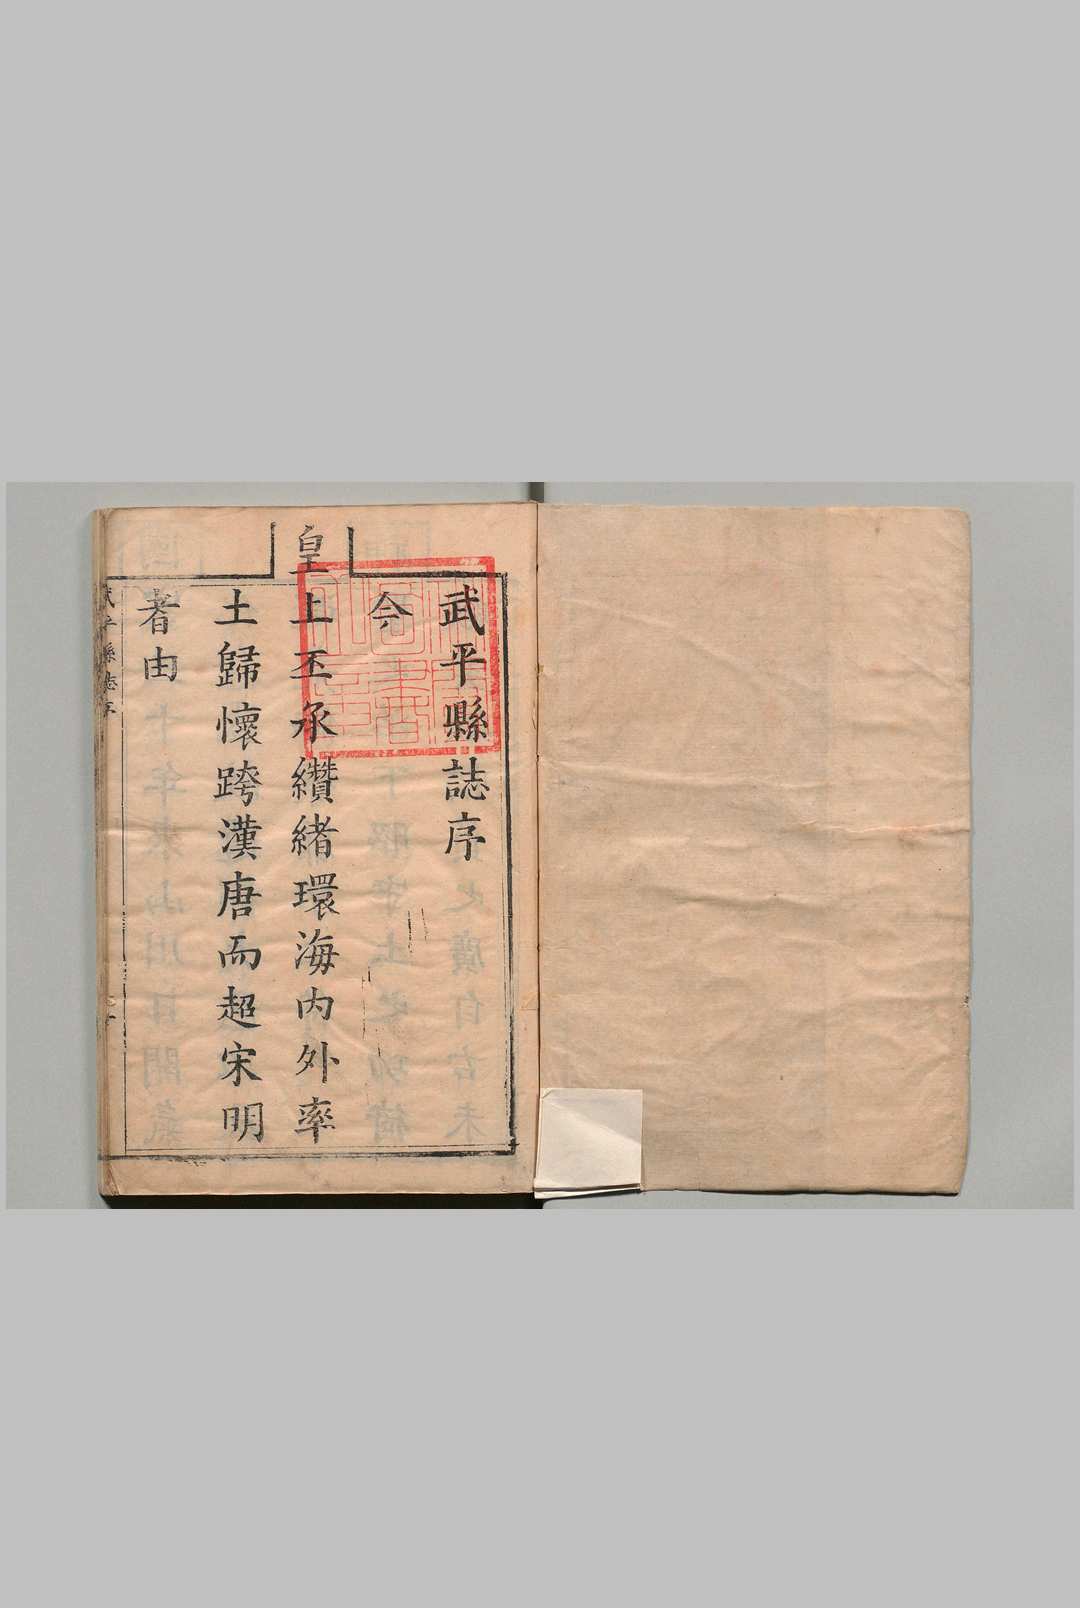 武平縣誌序
今
皇上丕承纘緒環海內外率
土歸懷跨漢唐而超宋明
者由
武平縣志序